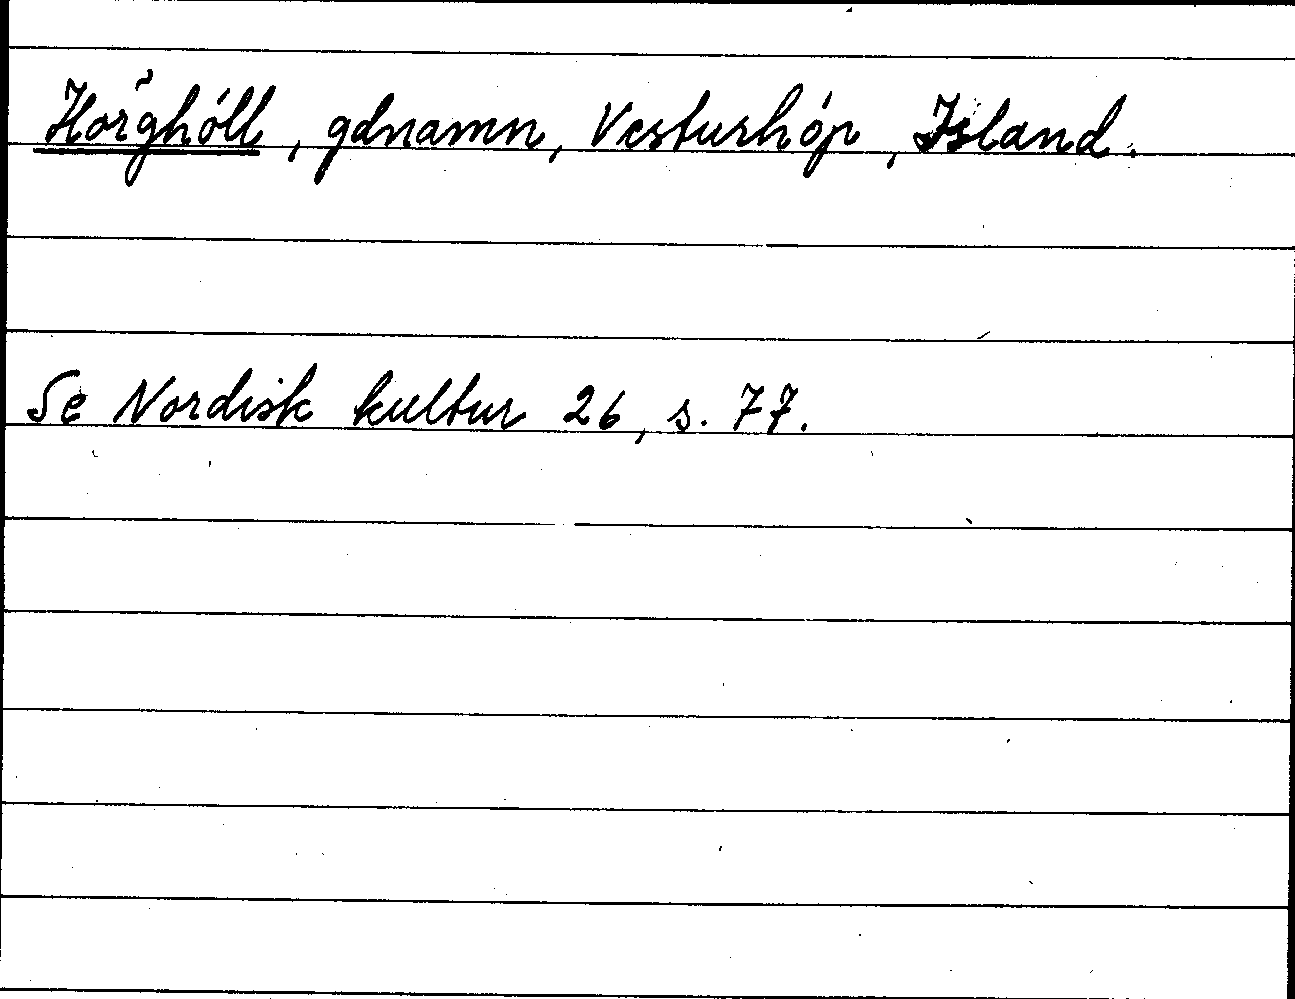 Hörghóll, gdnamn, Vesturhóp, Island.
Se Nordisk kultur 26, s. 77.